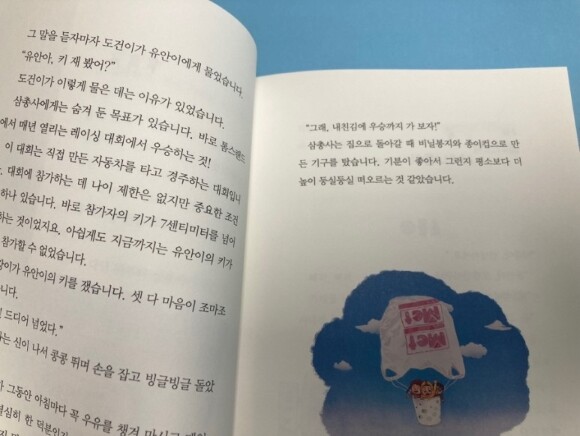 그 말을 듣자마자 도건이가 유안이에게 물었습니다.
"유안아, 키 재 봤어?"
도건이가 이렇게 물은 데는 이유가 있었습니다.
삼총사에게는 숨겨 둔 목표가 있습니다. 바로 톰스랜드
에서 매년 열리는 레이싱 대회에서 우승하는 것!
이 대회는 직접 만든 자동차를 타고 경주하는 대회입니
대회에 참가하는 데 나이 제한은 없지만 중요한 조건
하나 있습니다. 바로 참가자의 키가 7센티미터를 넘어
하는 것이었지요. 아쉽게도 지금까지는 유안이의 키가
참가할 수 없었습니다.
이가 유안이의 키를 쟀습니다. 셋 다 마음이 조마조
니다.
드디어 넘었다."
는 신이 나서 콩콩 뛰며 손을 잡고 빙글빙글 돌았
그동안 아침마다 꼭 우유를 챙겨 마시고
심히 한 덕분인
"그래, 내친김에 우승까지 가 보자!"
삼총사는 집으로 돌아갈 때 비닐봉지와 종이컵으로 만
든 기구를 탔습니다. 기분이 좋아서 그런지 평소보다 더
높이 둥실둥실 떠오르는 것 같았습니다.